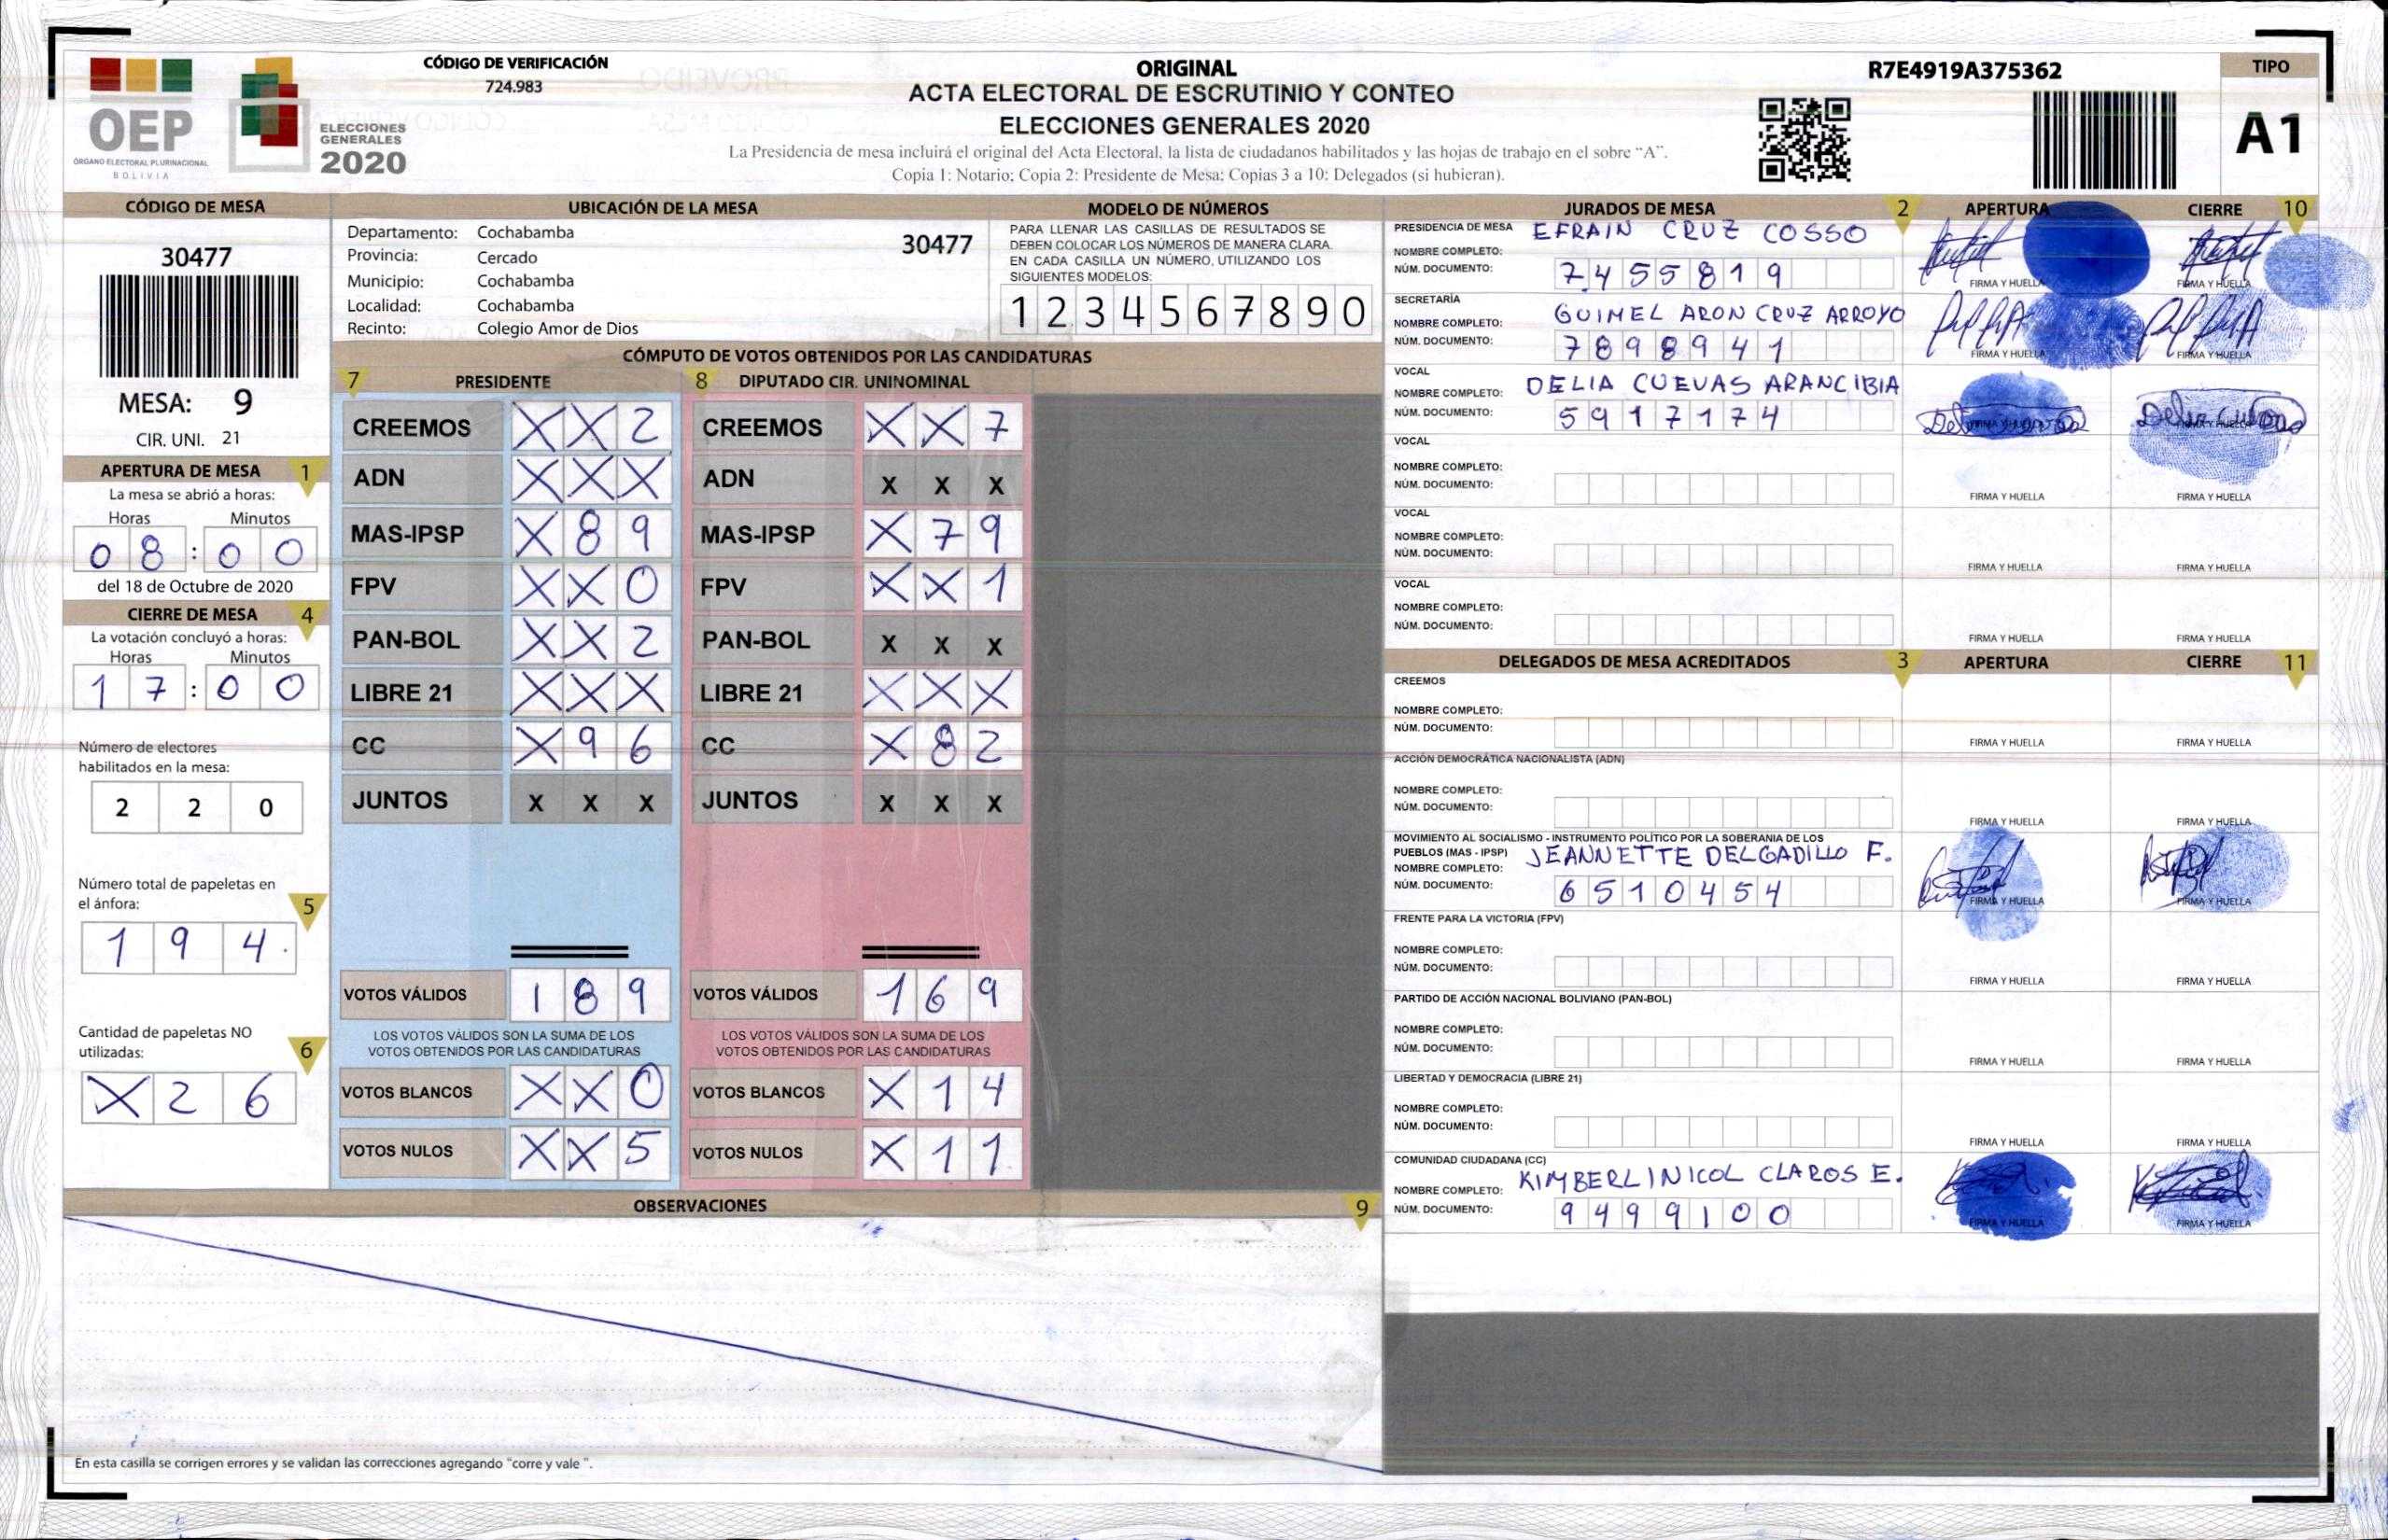 CÓDIGO DE VERIFICACIÓN
724.983
ORIGINAL
ACTA ELECTORAL DE ESCRUTINIO Y CONTEO
ELECCIONES GENERALES 2020
La Presidencia de mesa incluirá el original del Acta Electoral, la lista de ciudadanos habilitados y las hojas de trabajo en el sobre “A”.
Copia 1: Notario; Copia 2: Presidente de Mesa; Copias 3 a 10: Delegados (si hubieran).
R7E4919A375362
TIPO
A1
OEP
ÓRGANO ELECTORAL PLURINACIONAL
BOLIVIA
ELECCIONES
GENERALES
2020
CÓDIGO DE MESA
30477
MESA: 9
CIR. UNI. 21
APERTURA DE MESA 1
La mesa se abrió a horas:
Horas Minutos
0 8 : 0 0
del 18 de Octubre de 2020
CIERRE DE MESA 4
La votación concluyó a horas:
Horas Minutos
1 7 : 0 0
Número de electores
habilitados en la mesa:
2 2 0
Número total de papeletas en
el ánfora: 5
1 9 4
Cantidad de papeletas NO
utilizadas: 6
X 2 6
UBICACIÓN DE LA MESA
Departamento: Cochabamba
30477
Provincia: Cercado
Municipio: Cochabamba
Localidad: Cochabamba
Recinto: Colegio Amor de Dios
MODELO DE NÚMEROS
PARA LLENAR LAS CASILLAS DE RESULTADOS SE
DEBEN COLOCAR LOS NÚMEROS DE MANERA CLARA.
EN CADA CASILLA UN NÚMERO, UTILIZANDO LOS
SIGUIENTES MODELOS:
1 2 3 4 5 6 7 8 9 0
CÓMPUTO DE VOTOS OBTENIDOS POR LAS CANDIDATURAS
7 PRESIDENTE 8 DIPUTADO CIR. UNINOMINAL
CREEMOS X X 2 CREEMOS X X 7
ADN X X X ADN X X X
MAS-IPSP X 8 9 MAS-IPSP X 7 9
FPV X X 0 FPV X X 1
PAN-BOL X X 2 PAN-BOL X X X
LIBRE 21 X X X LIBRE 21 X X X
CC X 9 6 CC X 8 2
JUNTOS X X X JUNTOS X X X
VOTOS VÁLIDOS 1 8 9 VOTOS VÁLIDOS 1 6 9
LOS VOTOS VÁLIDOS SON LA SUMA DE LOS LOS VOTOS VÁLIDOS SON LA SUMA DE LOS
VOTOS OBTENIDOS POR LAS CANDIDATURAS VOTOS OBTENIDOS POR LAS CANDIDATURAS
VOTOS BLANCOS X X 0 VOTOS BLANCOS X 1 4
VOTOS NULOS X X 5 VOTOS NULOS X 1 1
OBSERVACIONES 9
En esta casilla se corrigen errores y se validan las correcciones agregando "corre y vale ".
JURADOS DE MESA 2 APERTURA CIERRE 10
PRESIDENCIA DE MESA EFRAIN CRUZ COSSO
NOMBRE COMPLETO:
NÚM. DOCUMENTO: 7455819
FIRMA Y HUELLA FIRMA Y HUELLA
SECRETARÍA
NOMBRE COMPLETO: GUIMEL ARON CRUZ ARROYO
NÚM. DOCUMENTO: 7898941
FIRMA Y HUELLA FIRMA Y HUELLA
VOCAL
NOMBRE COMPLETO: DELIA CUEVAS ARANCIBIA
NÚM. DOCUMENTO: 5917174
FIRMA Y HUELLA FIRMA Y HUELLA
VOCAL
NOMBRE COMPLETO:
NÚM. DOCUMENTO:
FIRMA Y HUELLA FIRMA Y HUELLA
VOCAL
NOMBRE COMPLETO:
NÚM. DOCUMENTO:
FIRMA Y HUELLA FIRMA Y HUELLA
VOCAL
NOMBRE COMPLETO:
NÚM. DOCUMENTO:
FIRMA Y HUELLA FIRMA Y HUELLA
DELEGADOS DE MESA ACREDITADOS 3 APERTURA CIERRE 11
CREEMOS
NOMBRE COMPLETO:
NÚM. DOCUMENTO:
FIRMA Y HUELLA FIRMA Y HUELLA
ACCIÓN DEMOCRÁTICA NACIONALISTA (ADN)
NOMBRE COMPLETO:
NÚM. DOCUMENTO:
FIRMA Y HUELLA FIRMA Y HUELLA
MOVIMIENTO AL SOCIALISMO - INSTRUMENTO POLÍTICO POR LA SOBERANIA DE LOS
PUEBLOS (MAS - IPSP) JEANNETTE DELGADILLO F.
NOMBRE COMPLETO:
NÚM. DOCUMENTO: 6510454
FIRMA Y HUELLA FIRMA Y HUELLA
FRENTE PARA LA VICTORIA (FPV)
NOMBRE COMPLETO:
NÚM. DOCUMENTO:
FIRMA Y HUELLA FIRMA Y HUELLA
PARTIDO DE ACCIÓN NACIONAL BOLIVIANO (PAN-BOL)
NOMBRE COMPLETO:
NÚM. DOCUMENTO:
FIRMA Y HUELLA FIRMA Y HUELLA
LIBERTAD Y DEMOCRACIA (LIBRE 21)
NOMBRE COMPLETO:
NÚM. DOCUMENTO:
FIRMA Y HUELLA FIRMA Y HUELLA
COMUNIDAD CIUDADANA (CC)
NOMBRE COMPLETO: KIMBERLI NICOL CLAROS E.
NÚM. DOCUMENTO: 9499100
FIRMA Y HUELLA FIRMA Y HUELLA